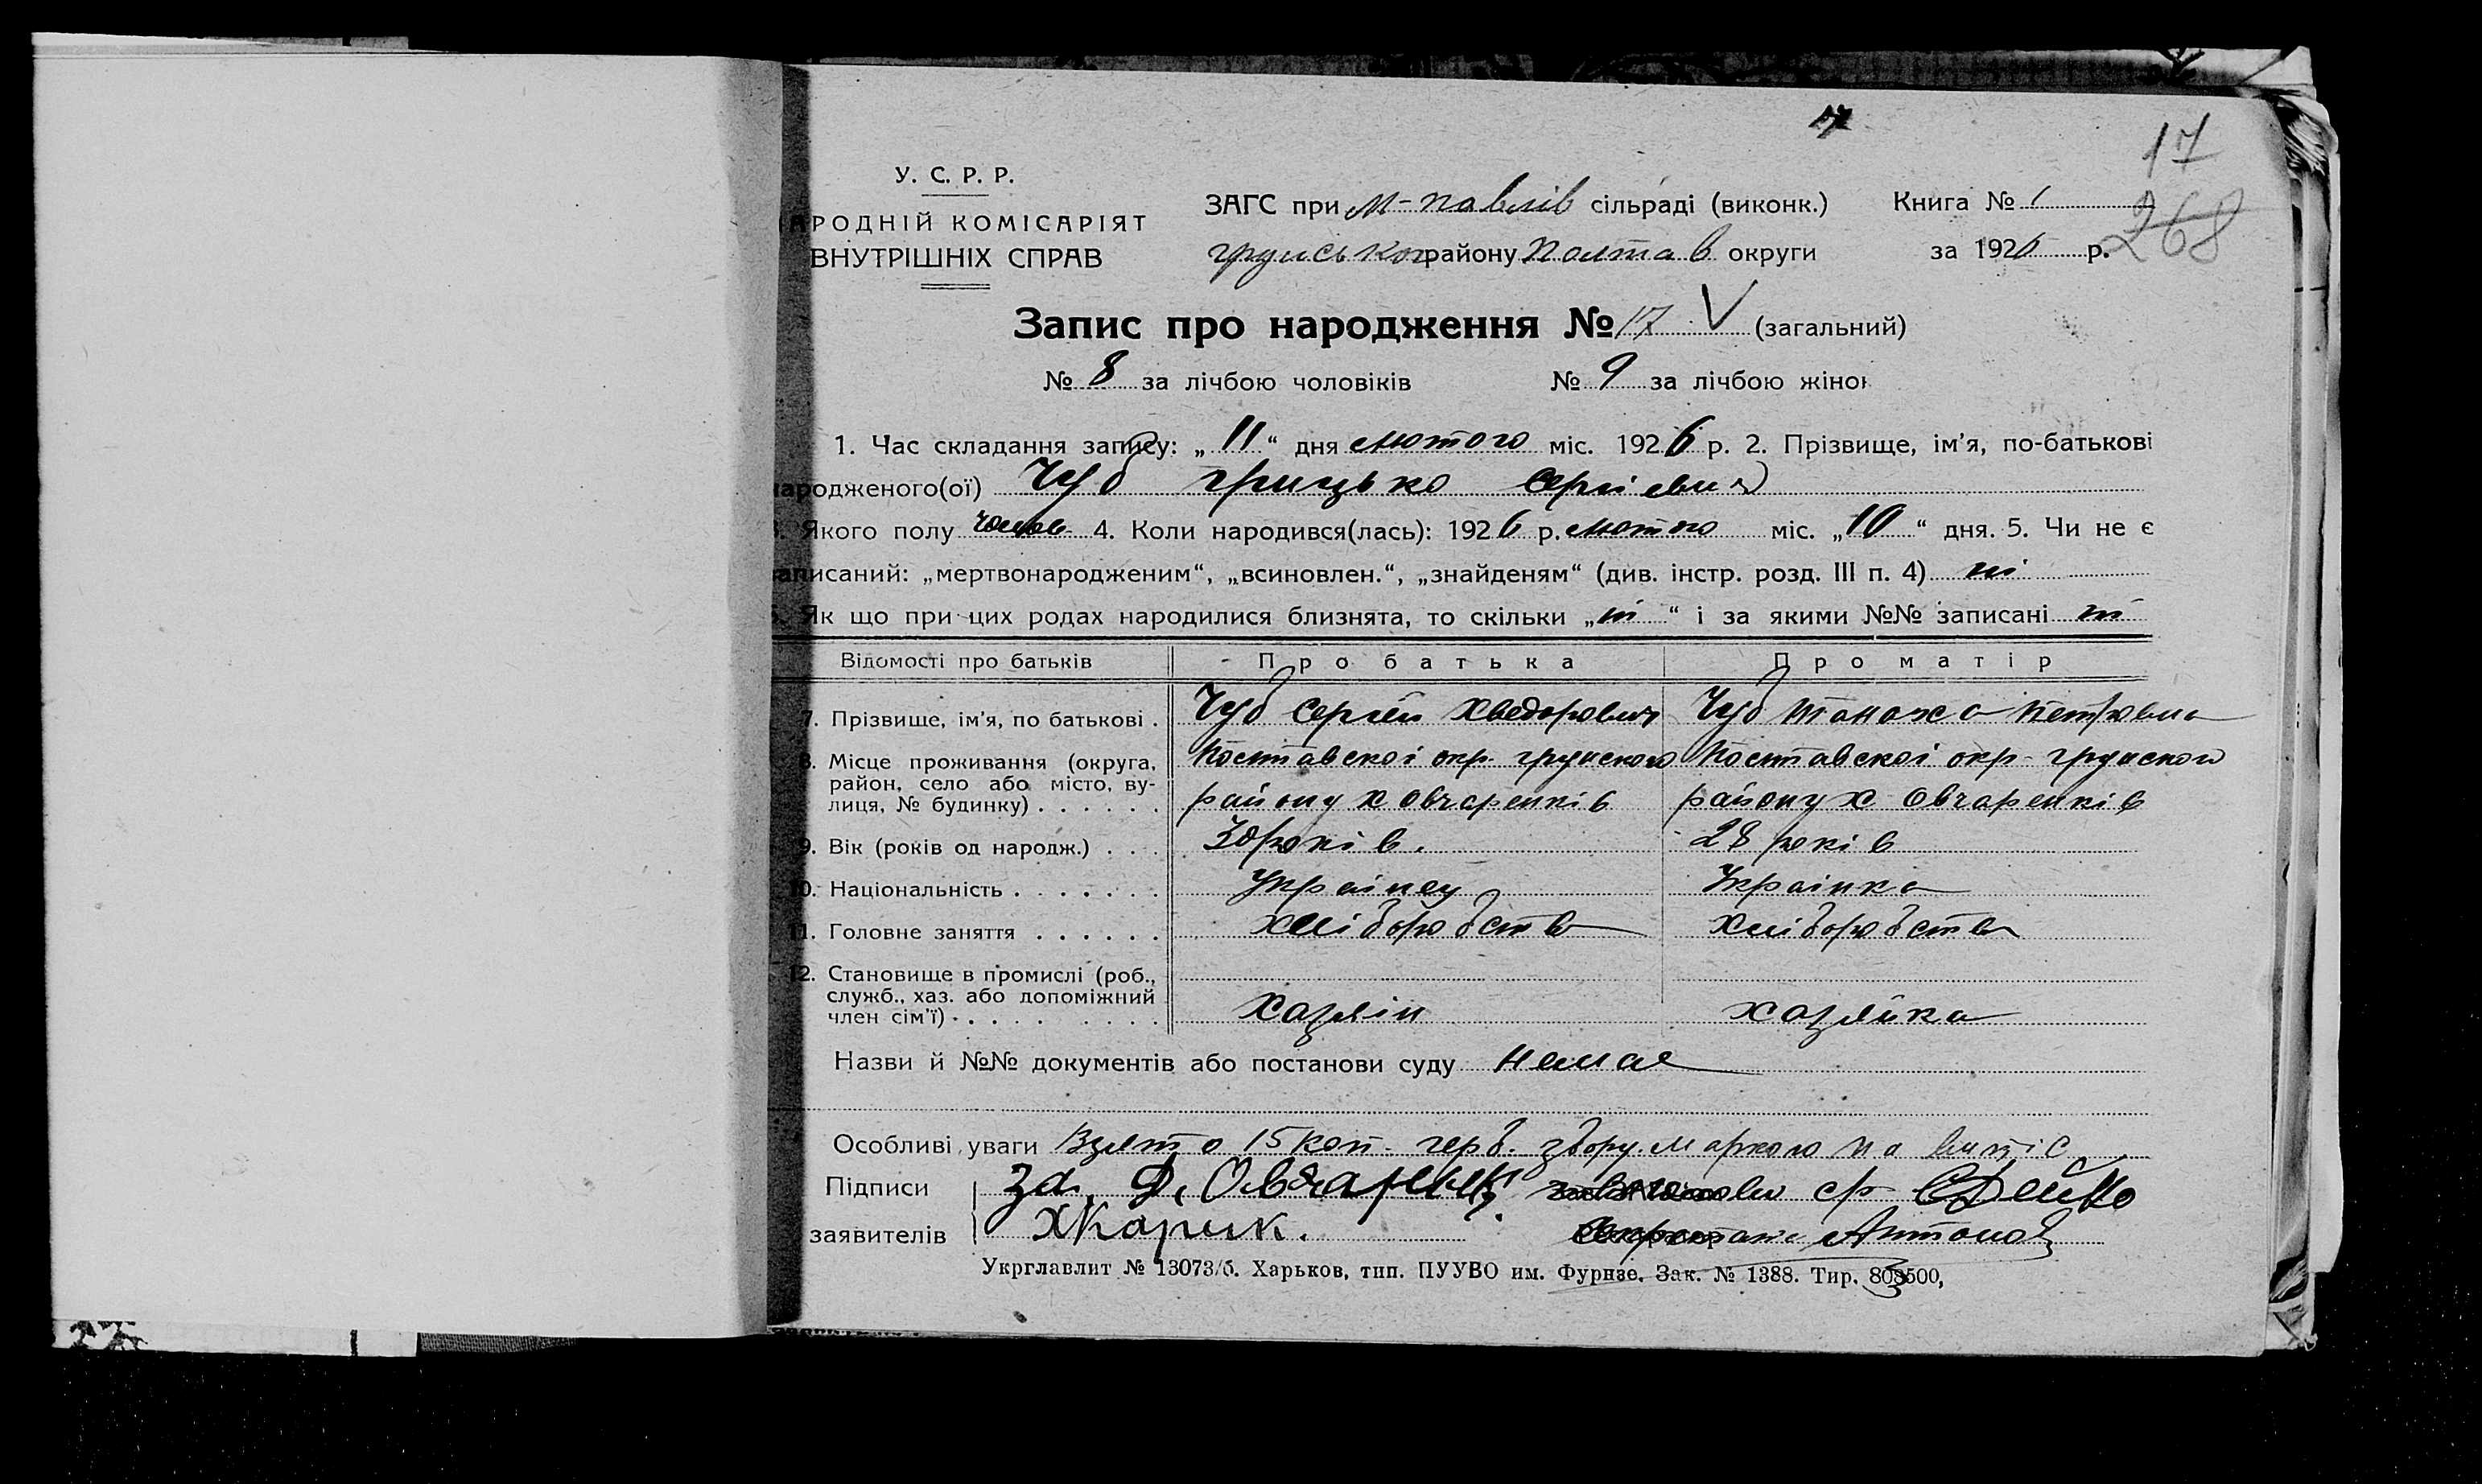 17
17
268
У. С. Р. Р.
АРОДНІЙ КОМІСАРІЯТ
ВНУТРІШНІХ СПРАВ
ЗАГС при М-павлів сільраді (виконк.)
грунського району Полтав округи
Книга № 1
за 1926 р.
Запис про народження № 17 V (загальний)
№ 8 за лічбою чоловіків № 9 за лічбою жінок
1. Час складання запису: „11“ дня лютого міс. 1926 р. 2. Прізвище, ім’я, по-батькові
народженого(ої) Чуб Грицько Сергієвич
3. Якого полу чолов 4. Коли народився(лась): 1926 р. лютого міс. „10“ дня. 5. Чи не є
записаний: „мертвонародженим“, „всиновлен.“, „знайденям“ (див. інстр. розд. III п. 4) ні
6. Як що при цих родах народилися близнята, то скільки „ні“ і за якими №№ записані ні
Відомості про батьків Про батька Про матір
7. Прізвище, ім’я, по батькові . Чуб Сергій Хведорович Чуб Петровна
8. Місце проживання (округа, район, село або місто, вулиця, № будинку) . . . . . .
Полтавскої окр. грунского Полтавскої окр. грунского
району х Овчаренків району х Овчаренків
9. Вік (років од народж.) . . . 30 років. 28 років
10. Національність . . . . . . . Українец Українка
11. Головне заняття . . . . . . хліборобство хліборобство
12. Становище в промислі (роб., служб., хаз. або допоміжний член сім’ї) . . . . . . . . .
хазяін хазяйка
Назви й №№ документів або постанови суду немає
Особливі уваги Взято 15 коп. герб. збору маркою на витіс
Підписи заявителів
За. Д. Овчаренко
Жарик. Антонов
Укрглавлит № 13073/б. Харьков, тип. ПУУВО им. Фурнзе. Зак. № 1388. Тир. 803500,